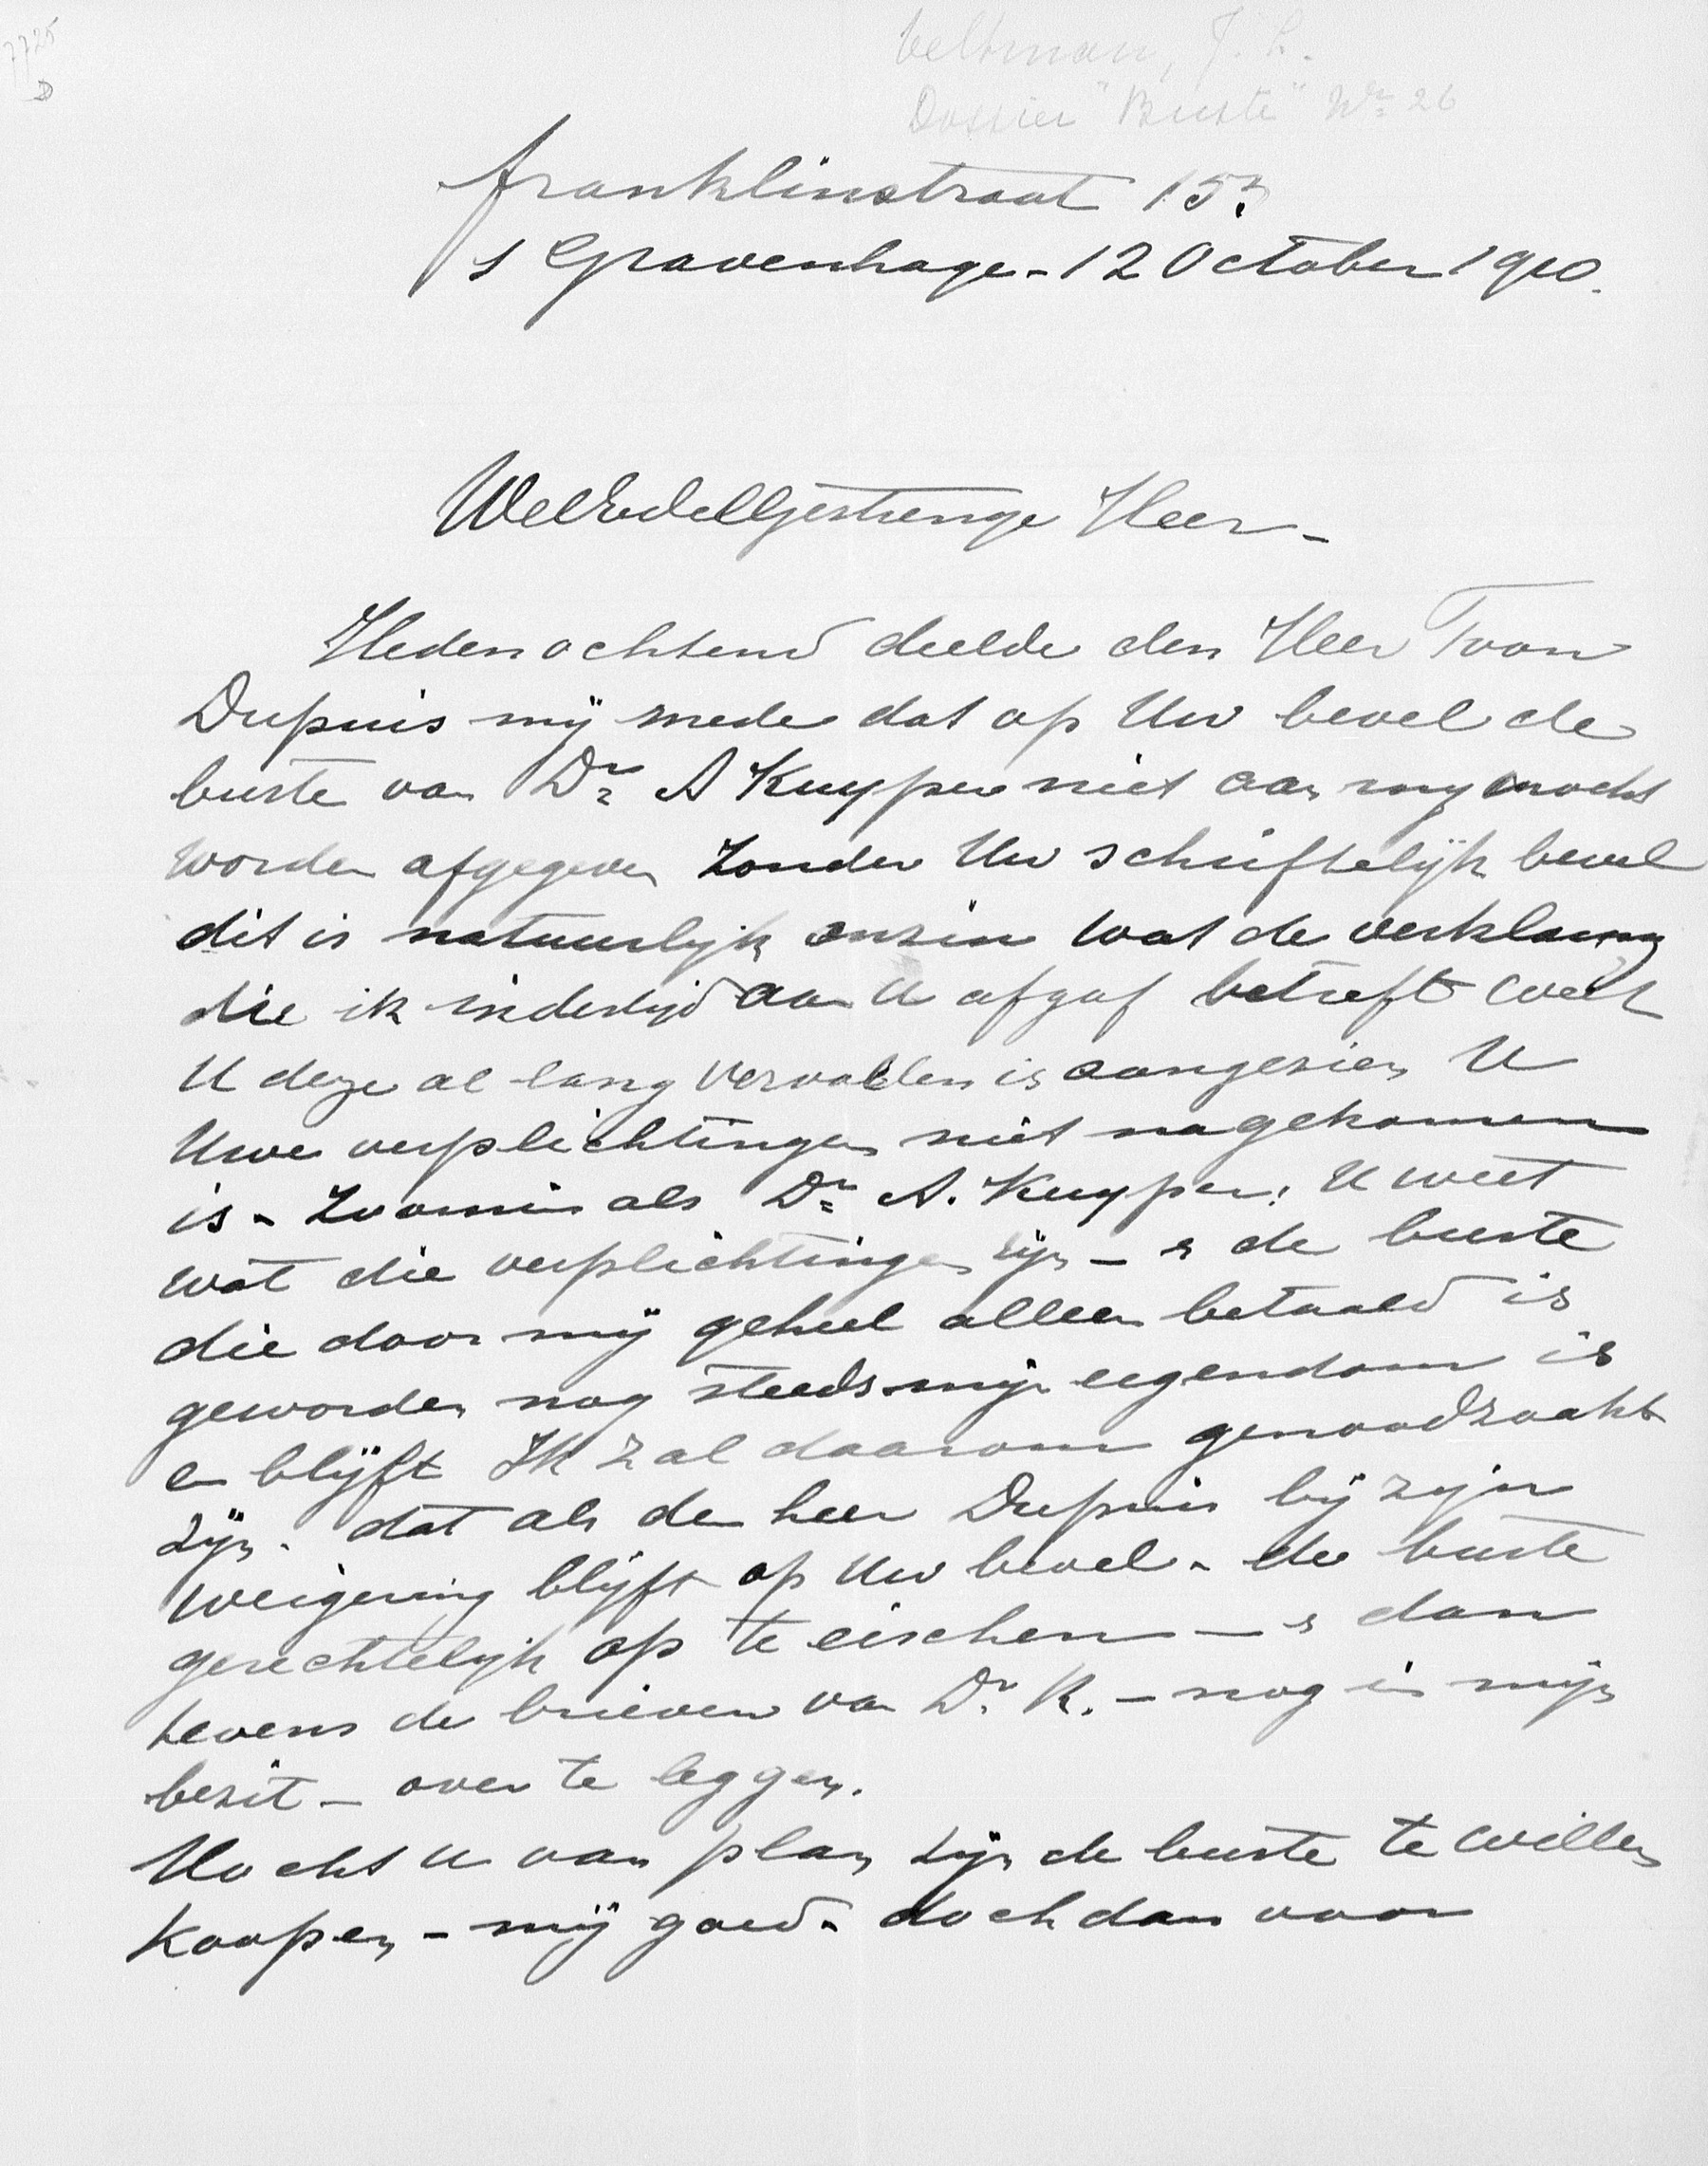 7725
D
Veltman, J. L.
Dossier "Buste" No 26
Franklinstraat 153
s Gravenhage - 12 October 1910.
WelEdelGestrenge Heer -
Hedenochtend deelde den Heer Toon
Dupuis mij mede dat op Uw bevel de
buste van Dr A Kuyper niet aan my mocht
worden afgegeven zonder Uw schriftelijk bevel
dit is natuurlijk onzin wat de verklaring
die ik indertijd aan U afgaf betreft weet
U deze al lang vervallen is aangezien U
Uwe verplichtingen niet nagekomen
is - Zoomin als Dr A. Kuyper. U weet
wat die verplichtingen zijn - & de buste
die door mij geheel alleen betaald is
geworden nog steeds mijn eigendom is
en blijft Ik zal daarom genoodzaakt
zijn. dat als den heer Dupuis bij zijn
weigering blijft op Uw bevel - de buste
gerechtelijk op te eischen - & dan
tevens de brieven van Dr K. - nog in mijn
bezit - over te leggen.
Mocht u van plan zijn de buste te willen
koopen - mij goed - doch dan voor